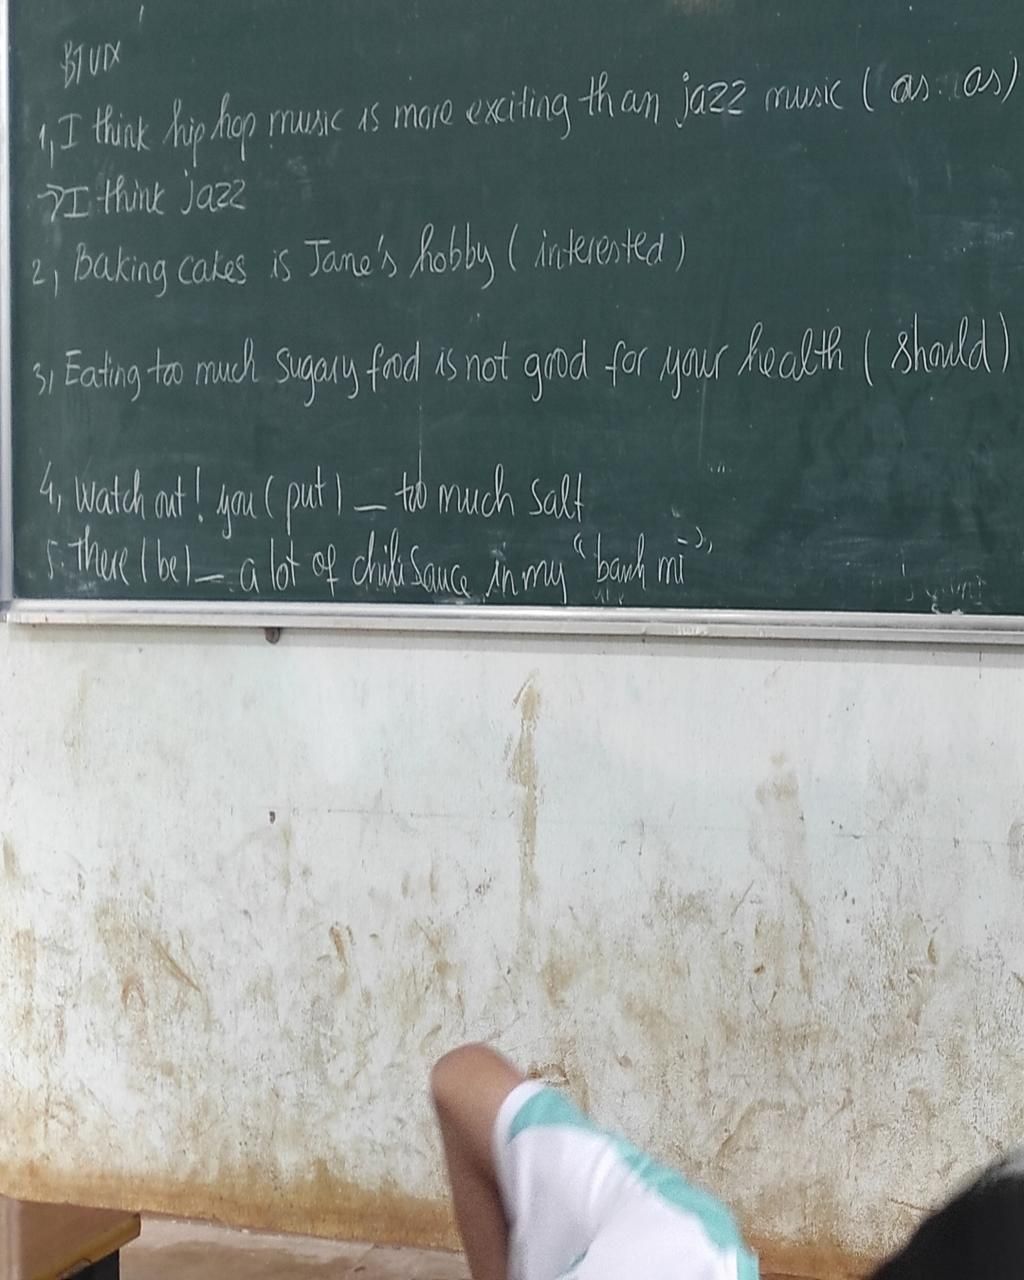 BTVIX
1, I think hip hop music is more exciting than jazz music ( as..as)
→I think jazz
2, Baking cakes is Jane's hobby ( interested )
3, Eating too much sugary food is not good for your health ( should )
4, Watch out! you ( put ) _ too much salt
5. There ( be ) _ a lot of chili sauce in my "banh mi"